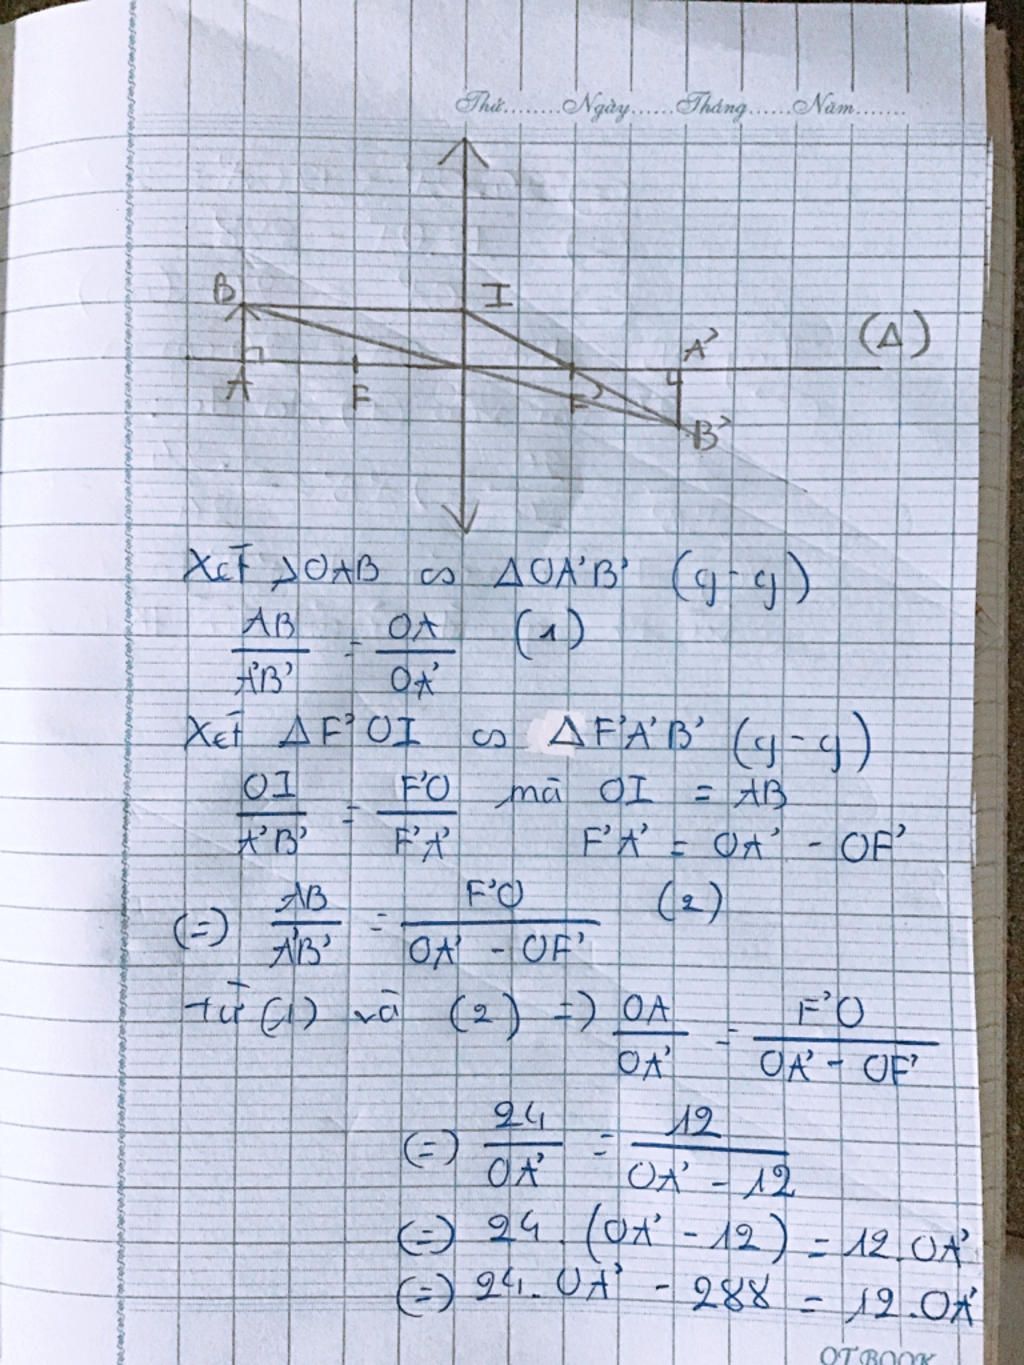 Thứ........Ngày......Tháng......Năm.......
B I A' (Δ)
A F F' B'
Xét ΔOAB ∽ ΔOA'B' (g-g)
AB/A'B' = OA/OA' (1)
Xét ΔF'OI ∽ ΔF'A'B' (g-g)
OI/A'B' = F'O/F'A' mà OI = AB
F'A' = OA' - OF'
(=) AB/A'B' = F'O/(OA' - OF') (2)
từ (1) và (2) =) OA/OA' = F'O/(OA' - OF')
(=) 24/OA' = 12/(OA' - 12)
(=) 24.(OA' - 12) = 12.OA'
(=) 24.OA' - 288 = 12.OA'
OT BOOK